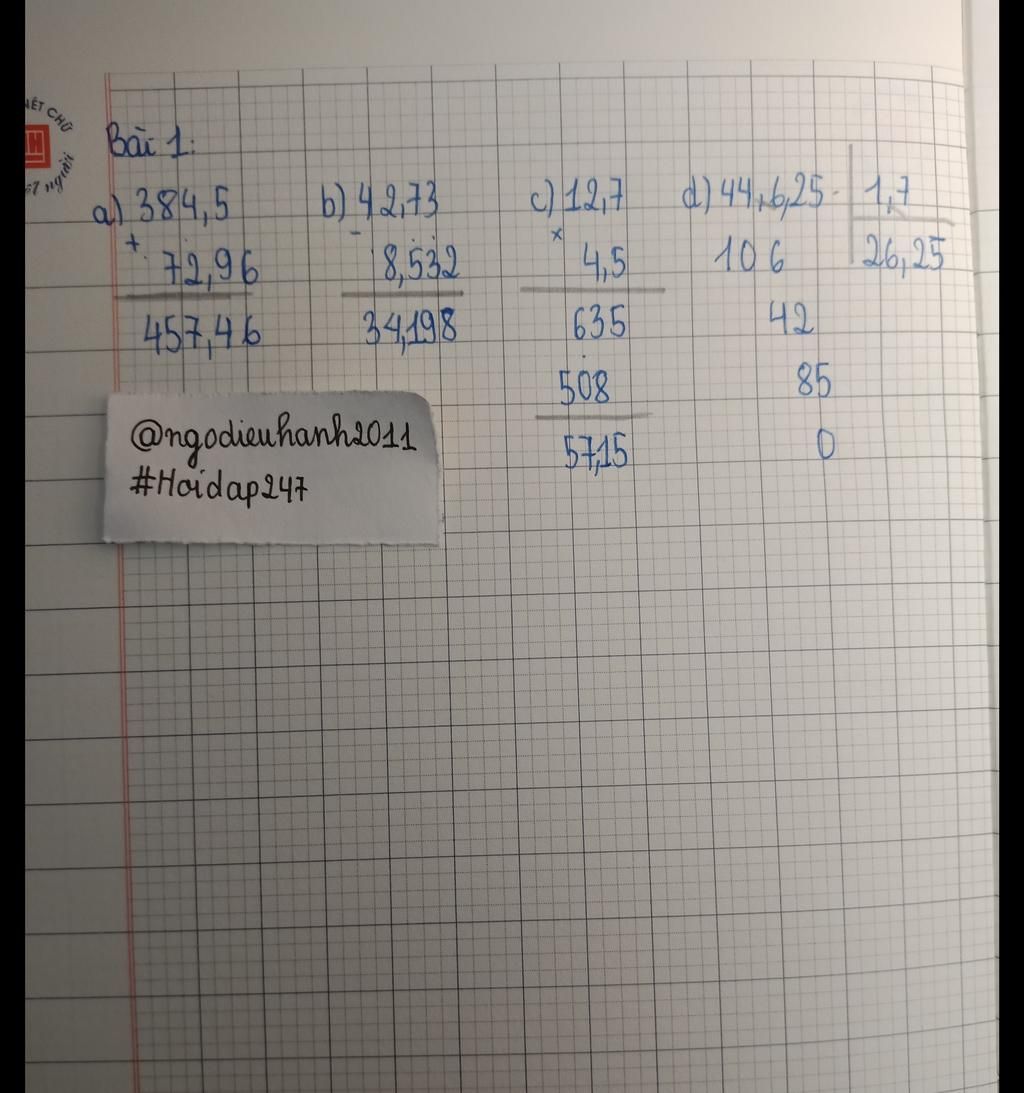 Bài 1:
a) 384,5
+
72,96
457,46
b) 42,73
-
8,532
34,198
c) 12,7
x
4,5
635
508
57,15
d) 44,6,25 1,7
106 26,25
42
85
0
@ngodieuhanh2011
#Hoidap247
NÉT CHỮ
H